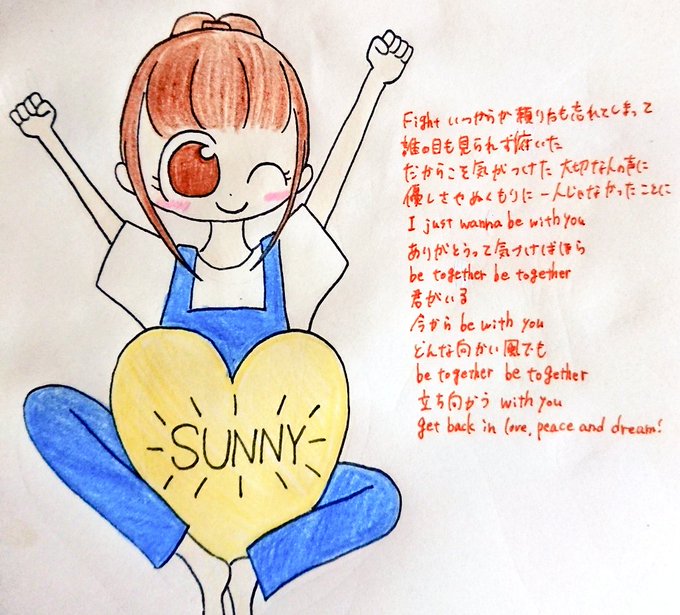 SUNNY
Fight いつからか頼り方も忘れてしまって
誰の目も見られず俯いた
だからこそ気がつけた 大切な人の声に
優しさやぬくもりに 一人じゃなかったことに
I just wanna be with you
ありがとうって気づけばほら
be together be together
君がいる
今から be with you
どんな向かい風でも
be together be together
立ち向かう with you
get back in love, peace and dream!